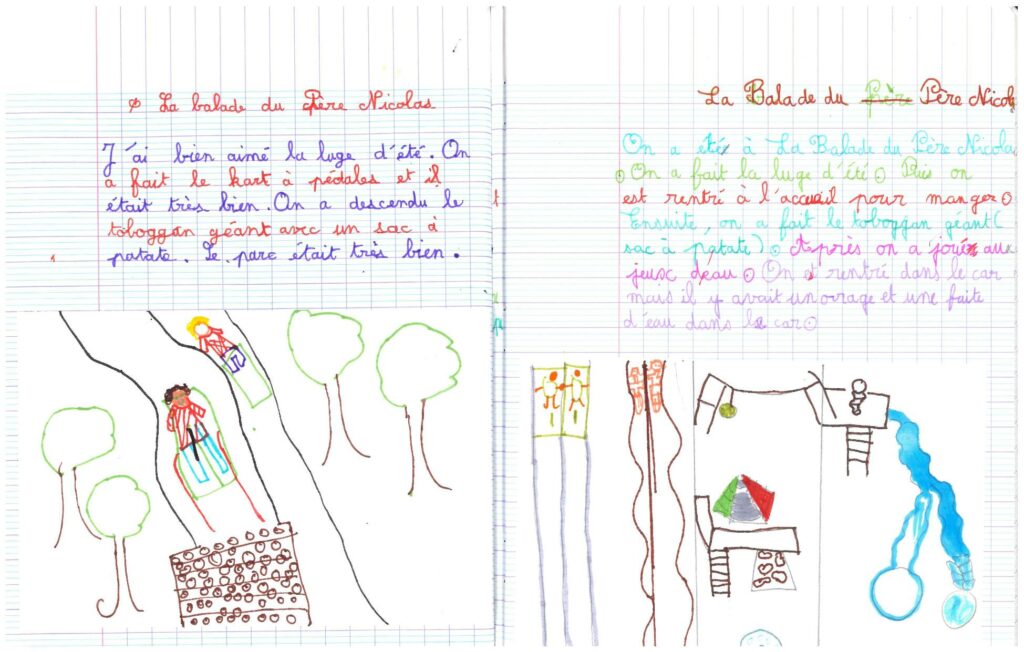 La balade du Père Nicolas
J'ai bien aimé la luge d'été. On
a fait le kart à pédales et il
était très bien. On a descendu le
toboggan géant avec un sac à
patate. Le parc était très bien.
La Balade du Père Père Nicol
On a été à La Balade du Père Nicola
. On a frait la luge d'été. Puis on
est rentré à l'accuail pour manger.
Ensuite, on a fait le toboggan géant(
sac à patate). Après on a joyé aux
jeux d'eau. On et rentré dans le car
mais il y avait un orrage et une faite
d'eau dans le car.